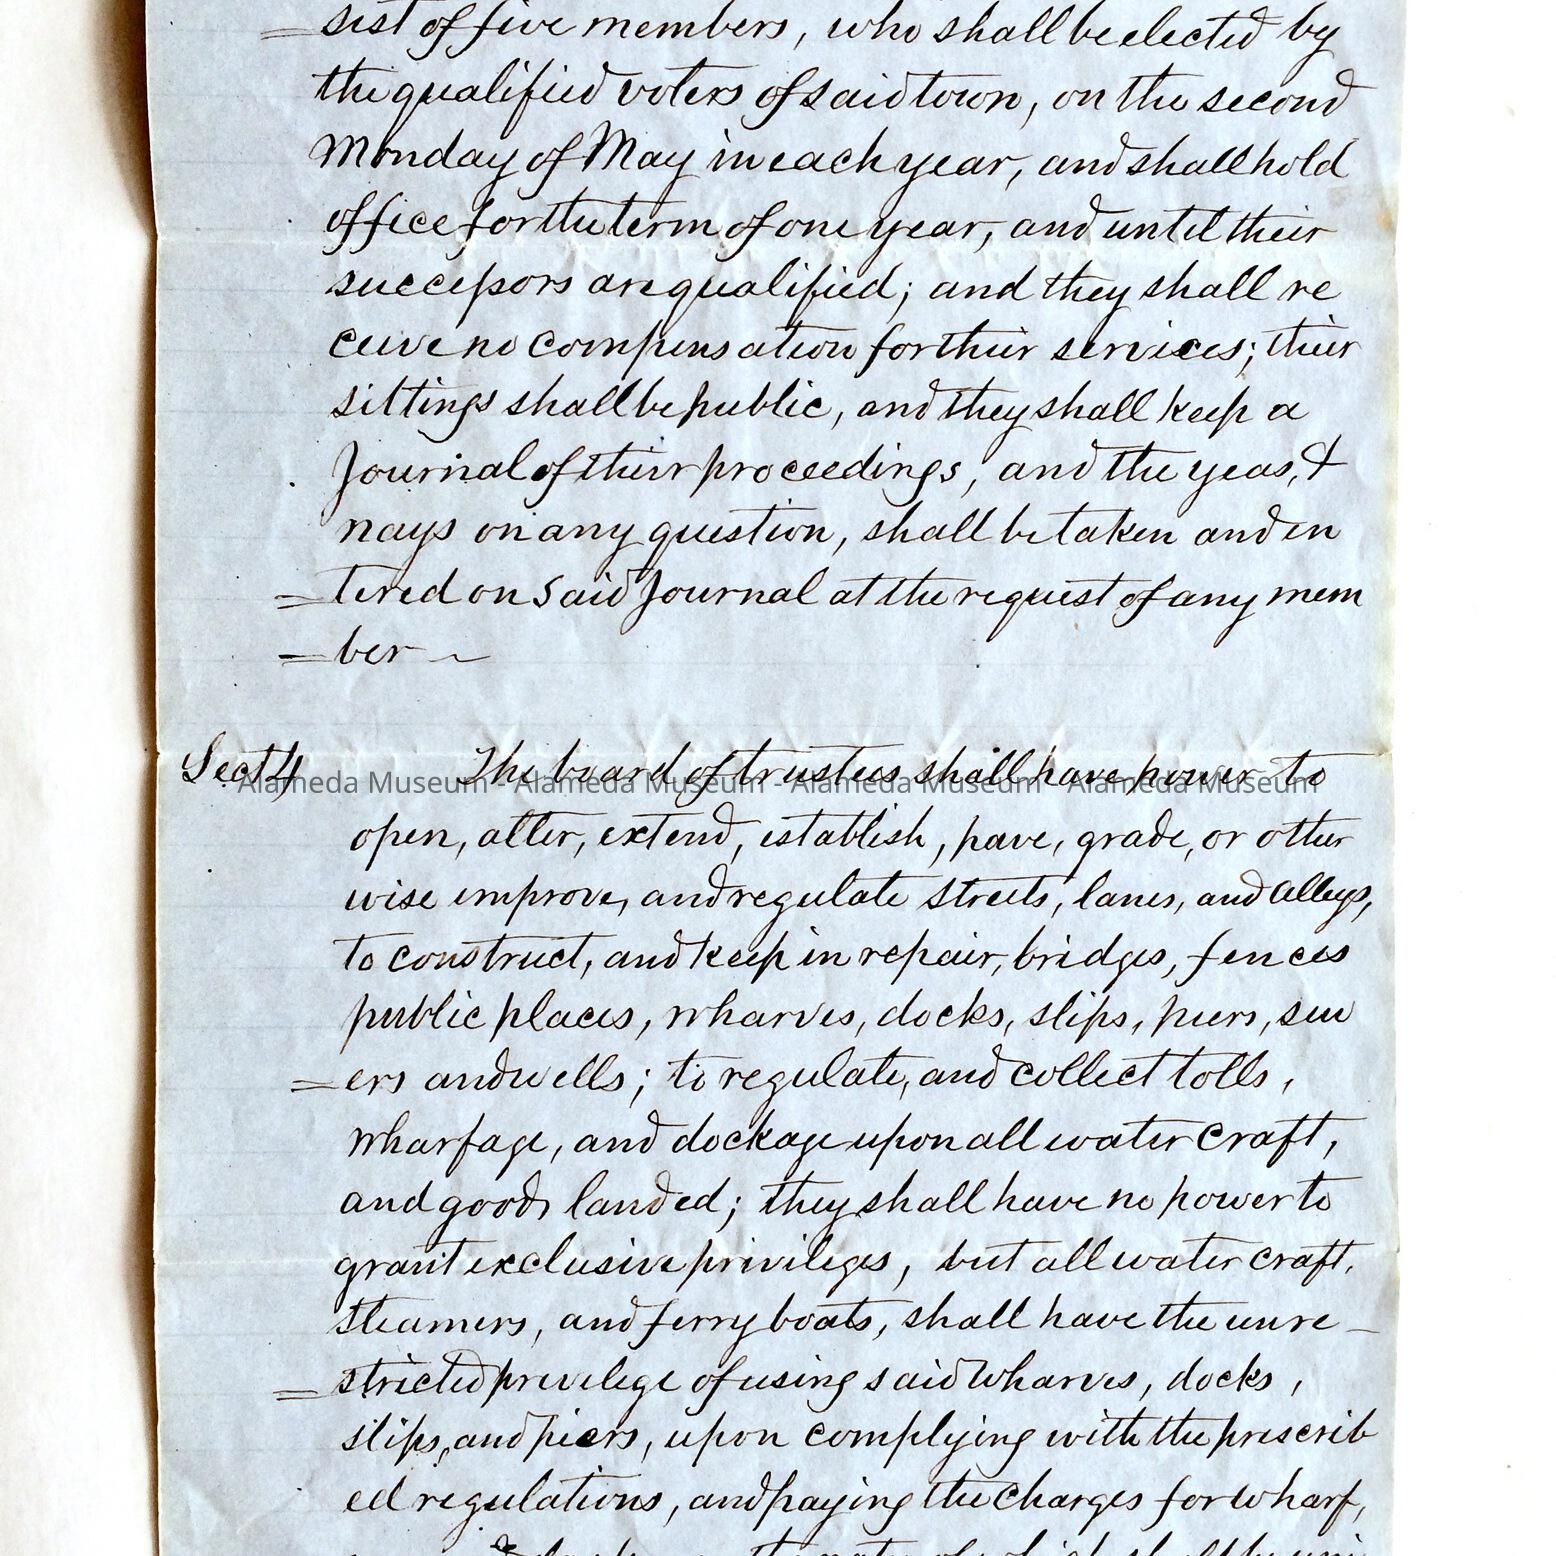 =sist of five members, who shall be elected by
the qualified voters of said town, on the second
Monday of May in each year, and shall hold
office for the term of one year, and until their
successors are qualified; and they shall re
ceive no compensation for their services; their
sittings shall be public, and they shall keep a
Journal of their proceedings, and the yeas, &
nays on any question, shall be taken and en
=tered on said Journal at the request of any mem
=ber ~
Sect 4 The board of trustees shall have power to
Alameda Museum - Alameda Museum - Alameda Museum - Alameda Museum
open, alter, extend, establish, pave, grade, or other
wise improve, and regulate streets, lanes, and alleys,
to construct, and keep in repair, bridges, fences
public places, wharves, docks, slips, piers, sew
=ers and wells; to regulate, and collect tolls,
wharfage, and dockage upon all water craft,
and goods landed; they shall have no power to
grant exclusive privileges, but all water craft,
steamers, and ferry boats, shall have the unre-
=stricted privilege of using said wharves, docks,
slips, and piers, upon complying with the prescrib
ed regulations, and paying the charges for wharf,